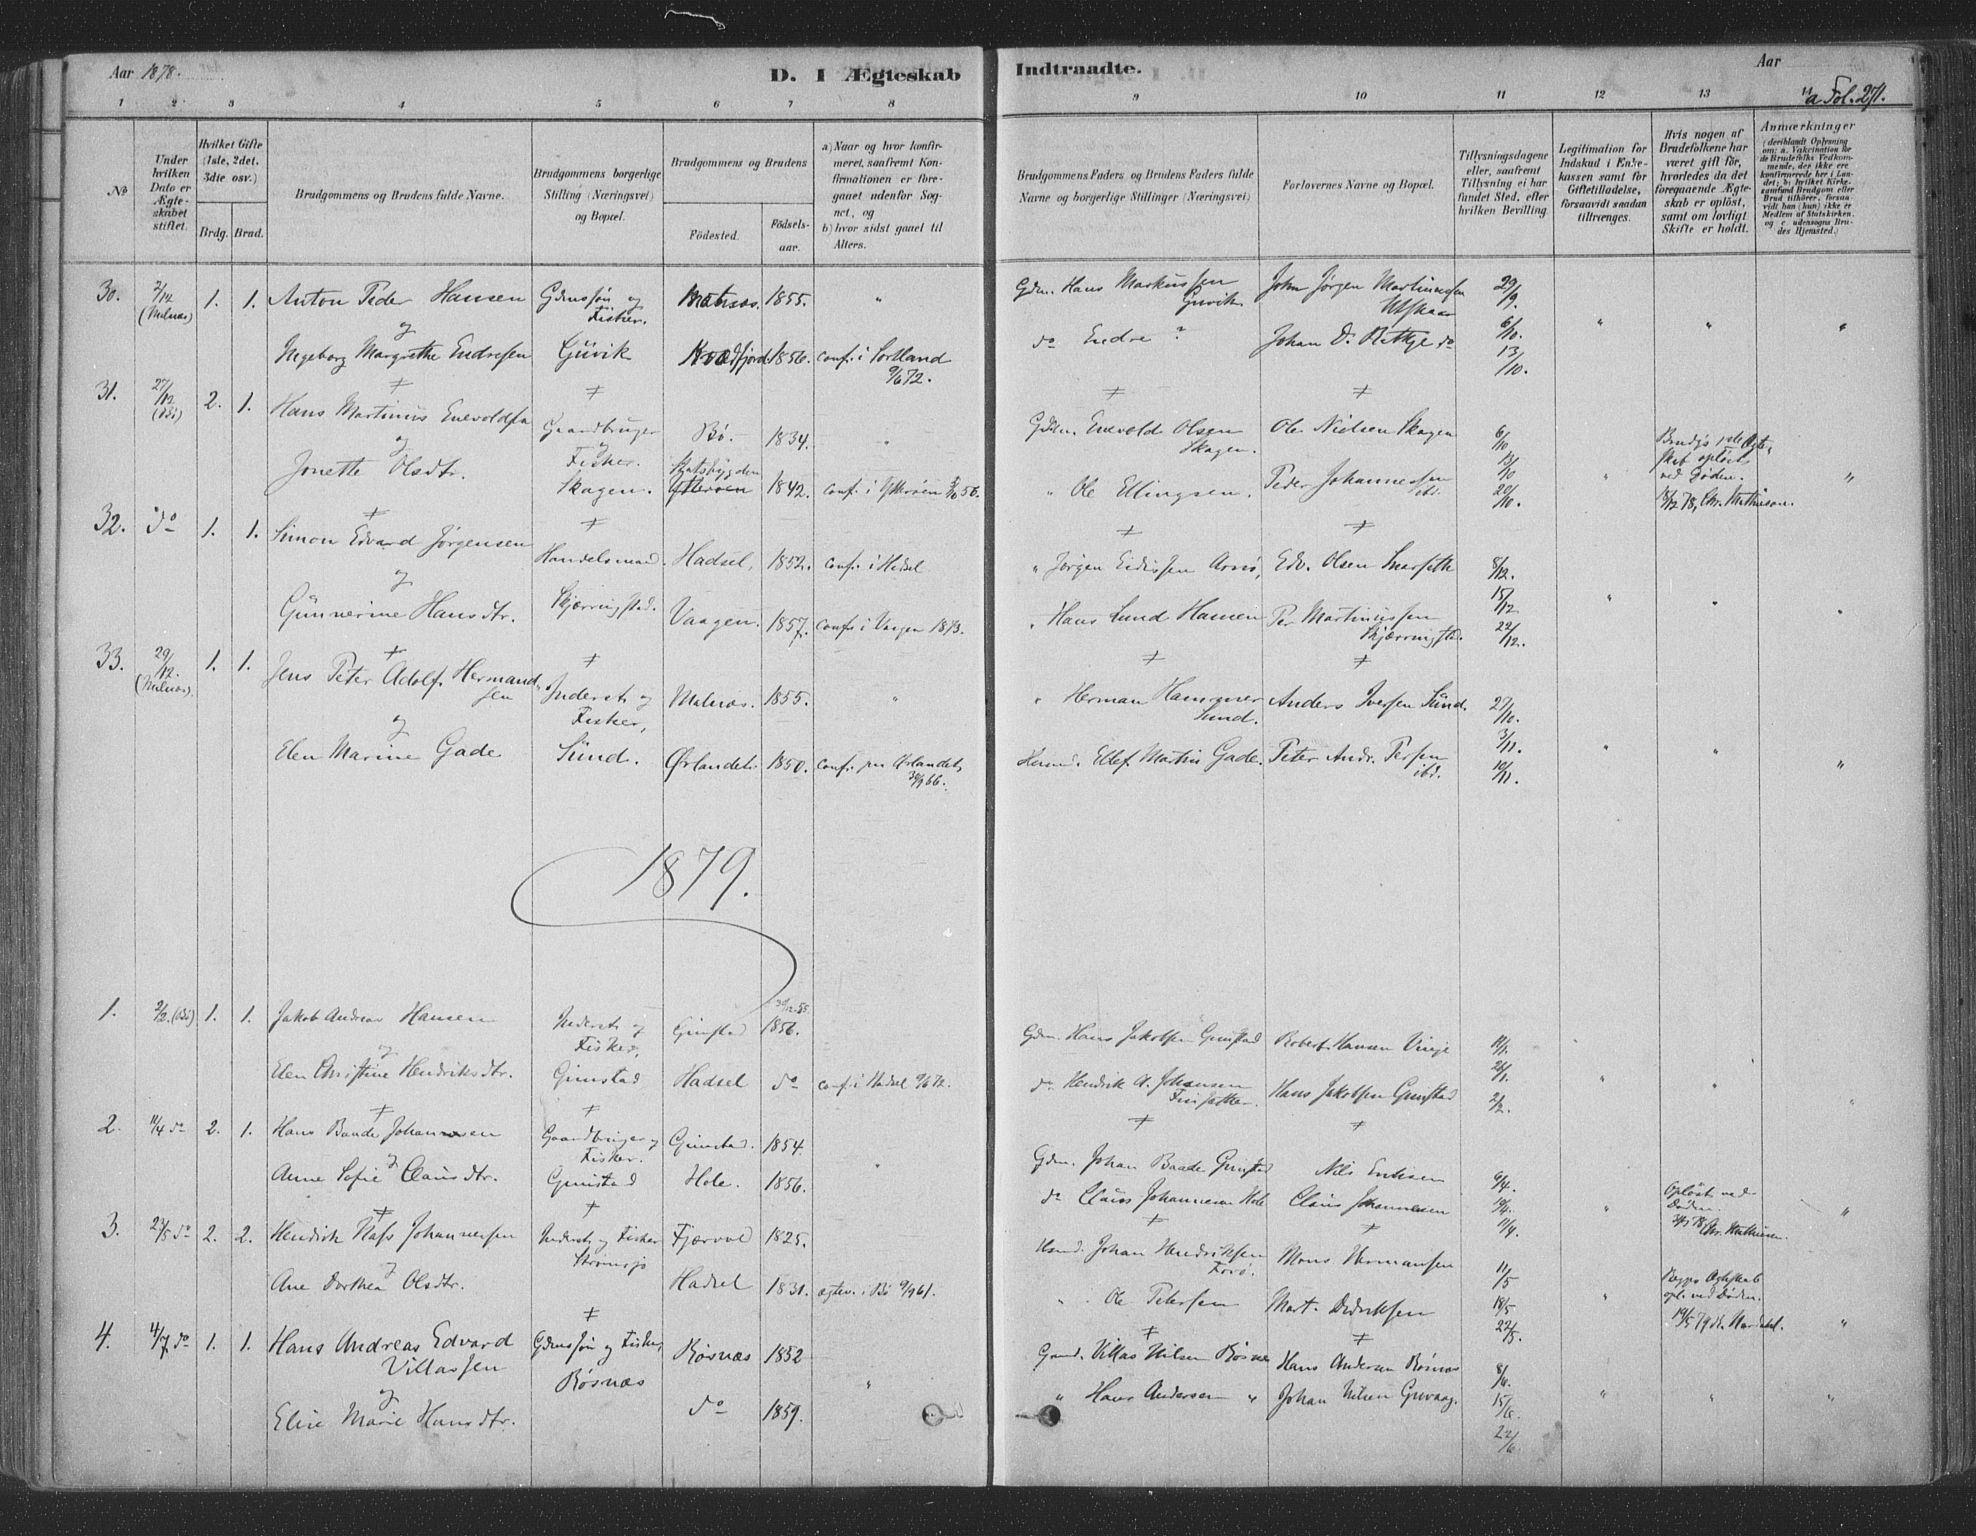 Aar 1878.
D. I Ægteskab
Indtraadte.
Aar
1 2 3 4 5 6 7 8
9 10 11 12 13 14
a Fol. 271.
No
Under hvilken Dato er Ægteskabet stiftet.
Hvilket Gifte (1ste, 2det, 3die osv.)
Brdg. Brud.
Brudgommens og Brudens fulde Navne.
Brudgommens borgerlige Stilling (Næringsvei) og Bopæl.
Brudgommens og Brudens
Fødested.
Fødselsaar.
a) Naar og hvor konfirmeret, saafremt Konfirmationen er foregaaet udenfor Sognet, og
b) hvor sidst gaaet til Alters.
Brudgommens Faders og Brudens Faders fulde Navne og borgerlige Stillinger (Næringsvei)
Forlovernes Navne og Bopæl.
Tillysningsdagene eller, saafremt Tillysning ei har fundet Sted, efter hvilken Bevilling.
Legitimation for Indskud i Enkekassen samt for Giftetilladelse, forsaavidt saadan tiltrænges.
Hvis nogen af Brudefolkene har været gift før, hvorledes da det foregaaende Ægteskab er opløst, samt om lovligt Skifte er holdt.
Anmærkninger
(deriblandt Oplysning om: a. Vakcination for de Brudefolks Vedkommende, der ikke ere konfirmerede her i Landet; b. hvilket Kirkesamfund Brudgom eller Brud tilhører, forsaavidt han (hun) ikke er Medlem af Statskirken, og c. udensogns Brudes Hjemsted.)
30. 2/12 (Malnæs) 1. 1. Anton Peder Hansen Gdmssøn og Fisker. Malnæs. 1855. " Gdm. Hans Markussen Guvik John Jørgen Martinussen Utskaar 29/9.
og
Ingeborg Margrethe Endresen Guvik Kvædfjord 1856. conf. i Sortland 9/6 72. do Endre ? Johan D. Rettkje do 6/10. 13/10. " " "
31. 27/12 (Bø) 2. 1. Hans Martinus Enevoldsen Gaardbruger og Fisker. Bø. 1834. " Gdm. Enevold Olsen Skagen. Ole Nielsen Skagen 6/10
og
Jonette Olsdtr. Skagen. Ytterøen 1842. conf. i Ytterøen 56. " Ole Ellingsen. Peder Johannessen ibd. 13/10 20/10. " Brudgs 1ste Ægteskab opløst ved Døden. 18/12 78, Chr. Mathiesen. "
32. do 1. 1. Simon Edvard Jørgensen Handelsmand. Hadsel, 1852. conf. i Hadsel " Jørgen Eidissen Arnø, Edv. Olsen 8/12.
og
Gunnerine Hansdtr. Skjærringstad. Vaagen. 1857. conf. i Vaagen 1873. " Hans Lund Hansen Per Martinussen Skjærringstad. 15/12 22/12. " " "
33. 29/12. (Malnæs). 1. 1. Jens Peter Adolf Hermandsen Inderst. og Fisker, Malnæs. 1855. " " Herman Hammer Sund. Anders Iversen Sund. 27/10.
og
Elen Marine Gade Sund. Ørlandet. 1850. conf. paa Ørlandet 30/9 66. Husmd. Ellef Martin Gade. Peter Andr. Persen ibd. 3/11. 10/11. " " "
1879.
1. 2/2. (Bø) 1. 1. Jakob Andreas Hansen Inderst. og Fisker, Gimstad 30/12 55 1856. Gdm. Hans Jakobsen Gimstad Robert Hansen Vinje
og
Elen Christine Hendriksdtr. Gimstad Hadsel do conf. i Hadsel 9/6 72. do Hendrik A. Johansen Hans Jakobsen Gimstad 2/2. " " "
2. 11/4 do 2. 1. Hans Baade Johannesen Gaardbruger og Fisker. Gimstad. 1854. Gdm. Johan Baade Gimstad Nils Eriksen 6/4.
og
Anne Sofie Clausdtr. Gimstad Hole. 1856. " do Claus Johannesen Hole Claus Johannesen 11/4. " Opløst ved Døden. Chr. Mathiesen. "
3. 23/5 do 2. 2. Hendrik Klafs Johannessen Inderst. og Fisker Fjærvol 1825. Husmd. Johan Hendriksen Mons Hermansen 11/5
og
Ane Dorthea Olsdtr. Hadsel 1831. ægtev. i Bø 9/9 61. " Ole Petersen Mart. Dedriksen 18/5 22/5. " Begges Ægteskab opl. ved Døden. 19/5 79 "
4. 4/7 do 1. 1. Hans Andreas Edvard Villassen Gdmssøn og Fisker, Røsnæs Røsnæs 1852 Gaard. Villas Nilsen Røsnæs Hans Andersen Røsnæs 8/6.
og
Elise Marie Hansdtr. do 1859. " " Hans Andersen " Johan Nilsen Guvaag. 15/6. 22/6 " " "